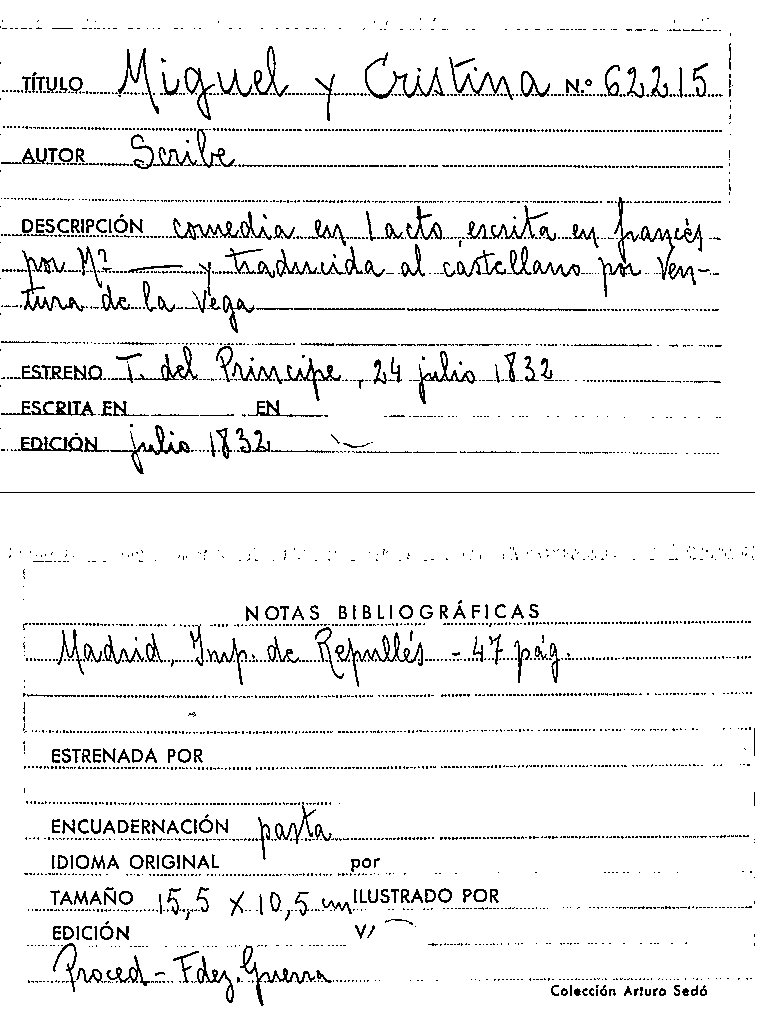 TÍTULO Miguel y Cristina N.º 62215
AUTOR Scribe
DESCRIPCIÓN comedia en 1 acto, escrita en francés
por Mr — y traducida al castellano por Ven-
tura de la Vega
ESTRENO T. del Príncipe, 24 julio 1832
ESCRITA EN EN
EDICIÓN julio 1832
NOTAS BIBLIOGRÁFICAS
Madrid, Imp. de Repullés - 47 pág.
ESTRENADA POR
ENCUADERNACIÓN pasta
IDIOMA ORIGINAL por
TAMAÑO 15,5 X 10,5 cm ILUSTRADO POR
EDICIÓN V/
Proced - Fdez. Guerra
Colección Arturo Sedó